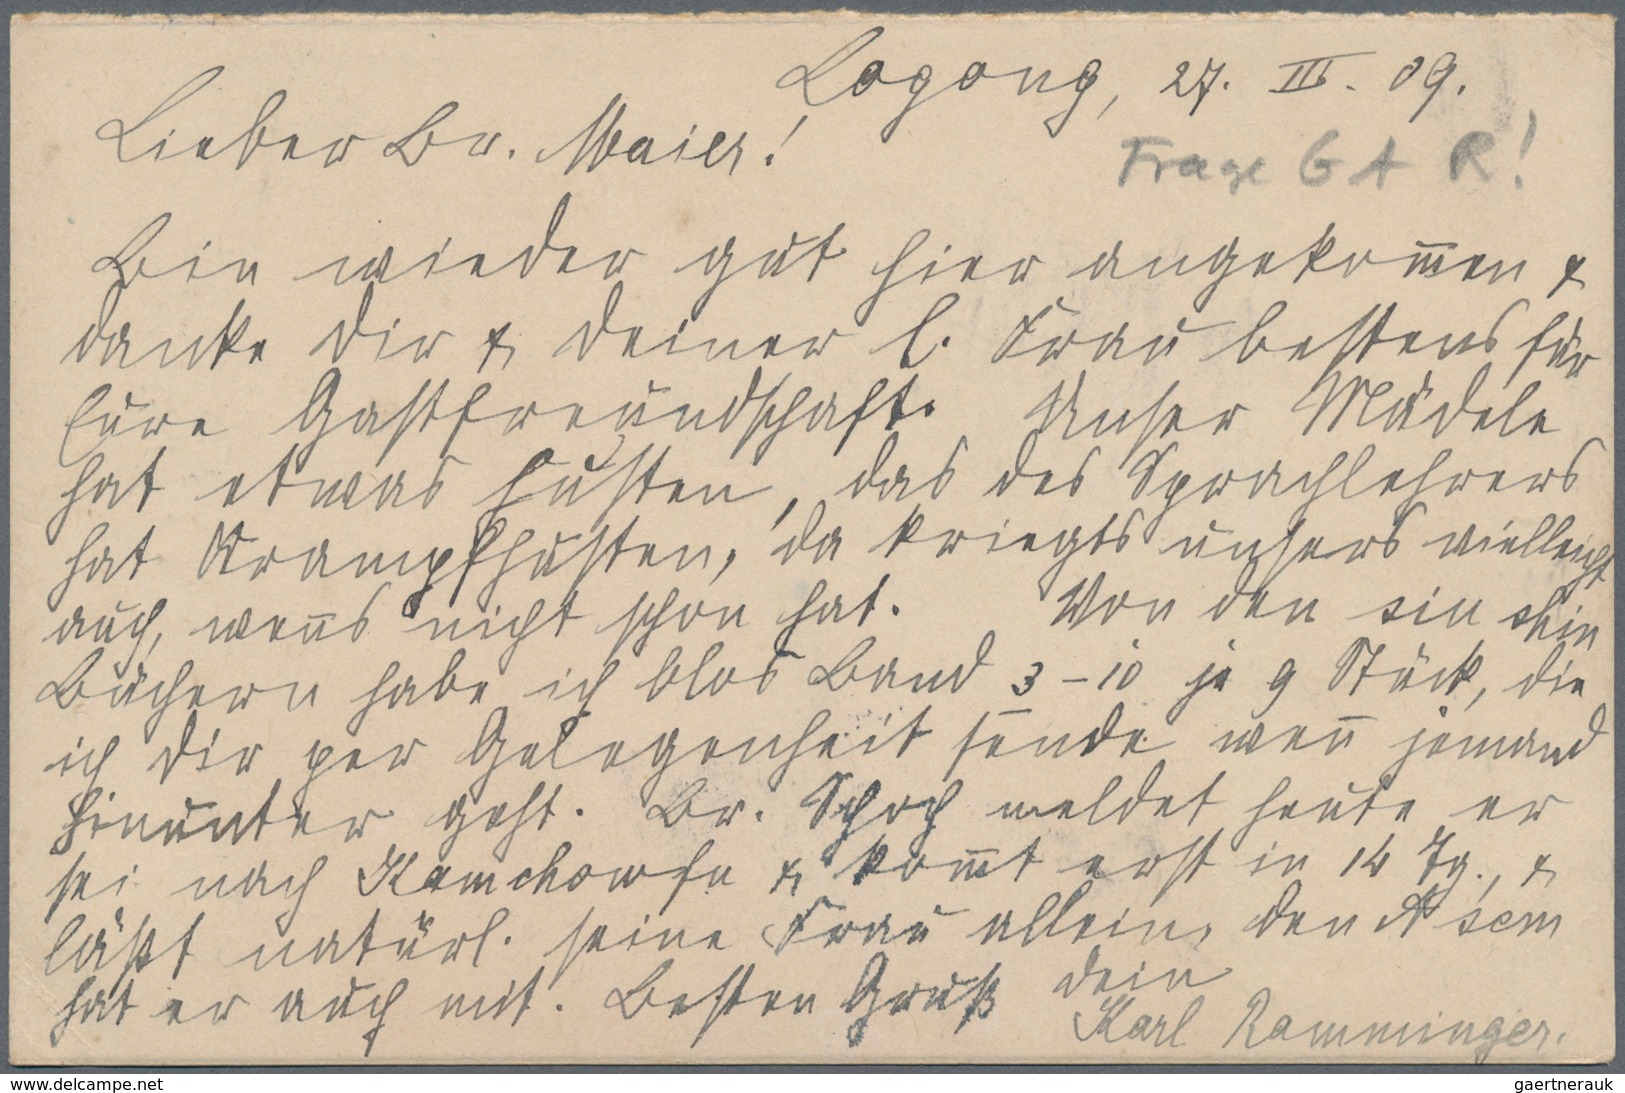 Logong, 27. III. 09.
Lieber Br. Maier!
Frage G A R!
Bin wieder gut hier angekom̅en &
danke Dir & Deiner l. Frau bestens für
Eure Gastfreundschaft. Unser Mädele
hat etwas Husten, das des Sprachlehrers
hat Krampfhusten, da kriegts unsers vielleicht
auch, wen̅s nicht schon hat. Von den sin shin
Büchern habe ich blos Band 3–10 je 9 Stück, die
ich Dir per Gelegenheit sende wen̅ jemand
hinunter geht. Br. Schoch meldet heute er
sei nach Kamchowfu & kom̅t erst in 14 Tg., &
läßt natürl. seine Frau allein, den A sem
hat er auch mit. Besten Gruß Dein
Karl Ramminger.
www.delcampe.net
gaertnerauk